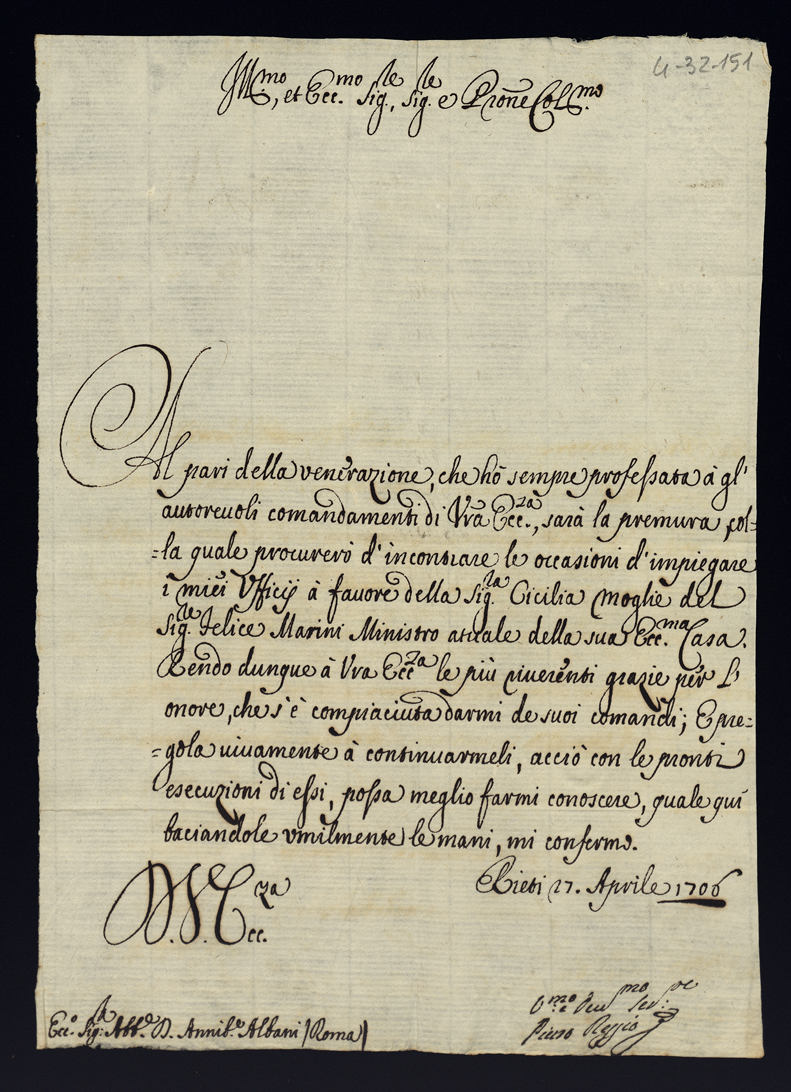 4-32-151
Ill.mo, et Ecc.mo Sig.le, Sig.le e Prone Col.mo
Al pari della venerazione, che hò sempre professata à gl'
autoreuoli comandamenti di Vra Ecc.za, sarà la premura, col=
=la quale procurerò d'incontrare le occasioni d'impiegare
i miei Vfficij à fauore della Sig.la Cicilia moglie del
Sig.le Felice Marini Ministro atuale della sua Ecc.ma Casa.
Rendo dunque à Vra Ecc.za le più riuerenti grazie per l'
onore, che s'è compiaciuta darmi de suoi comandi; E pre=
=gola uiuamente à continuarmeli, acciò con le pronti
esecuzioni di essi, possa meglio farmi conoscere, quale quì
baciandole vmilmente le mani, mi confermo.
Rieti 27. Aprile 1706
D. V. Ecc.za
Deu.mo Ser.re
Ecc.o Sig. Abb.e D. Annib.e Albani (Roma)